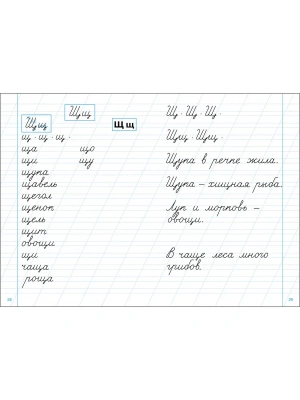 Щщ
Щщ
Щ щ
щ . щ . щ .
ща що
щи щу
щука
щавель
щегол
щенок
щель
щит
овощи
щи
чаща
роща
Щ . Щ . Щ .
Щщ . Щщ .
Щука в речке жила.
Щука – хищная рыба.
Лук и морковь –
овощи.
В чаще леса много
грибов.